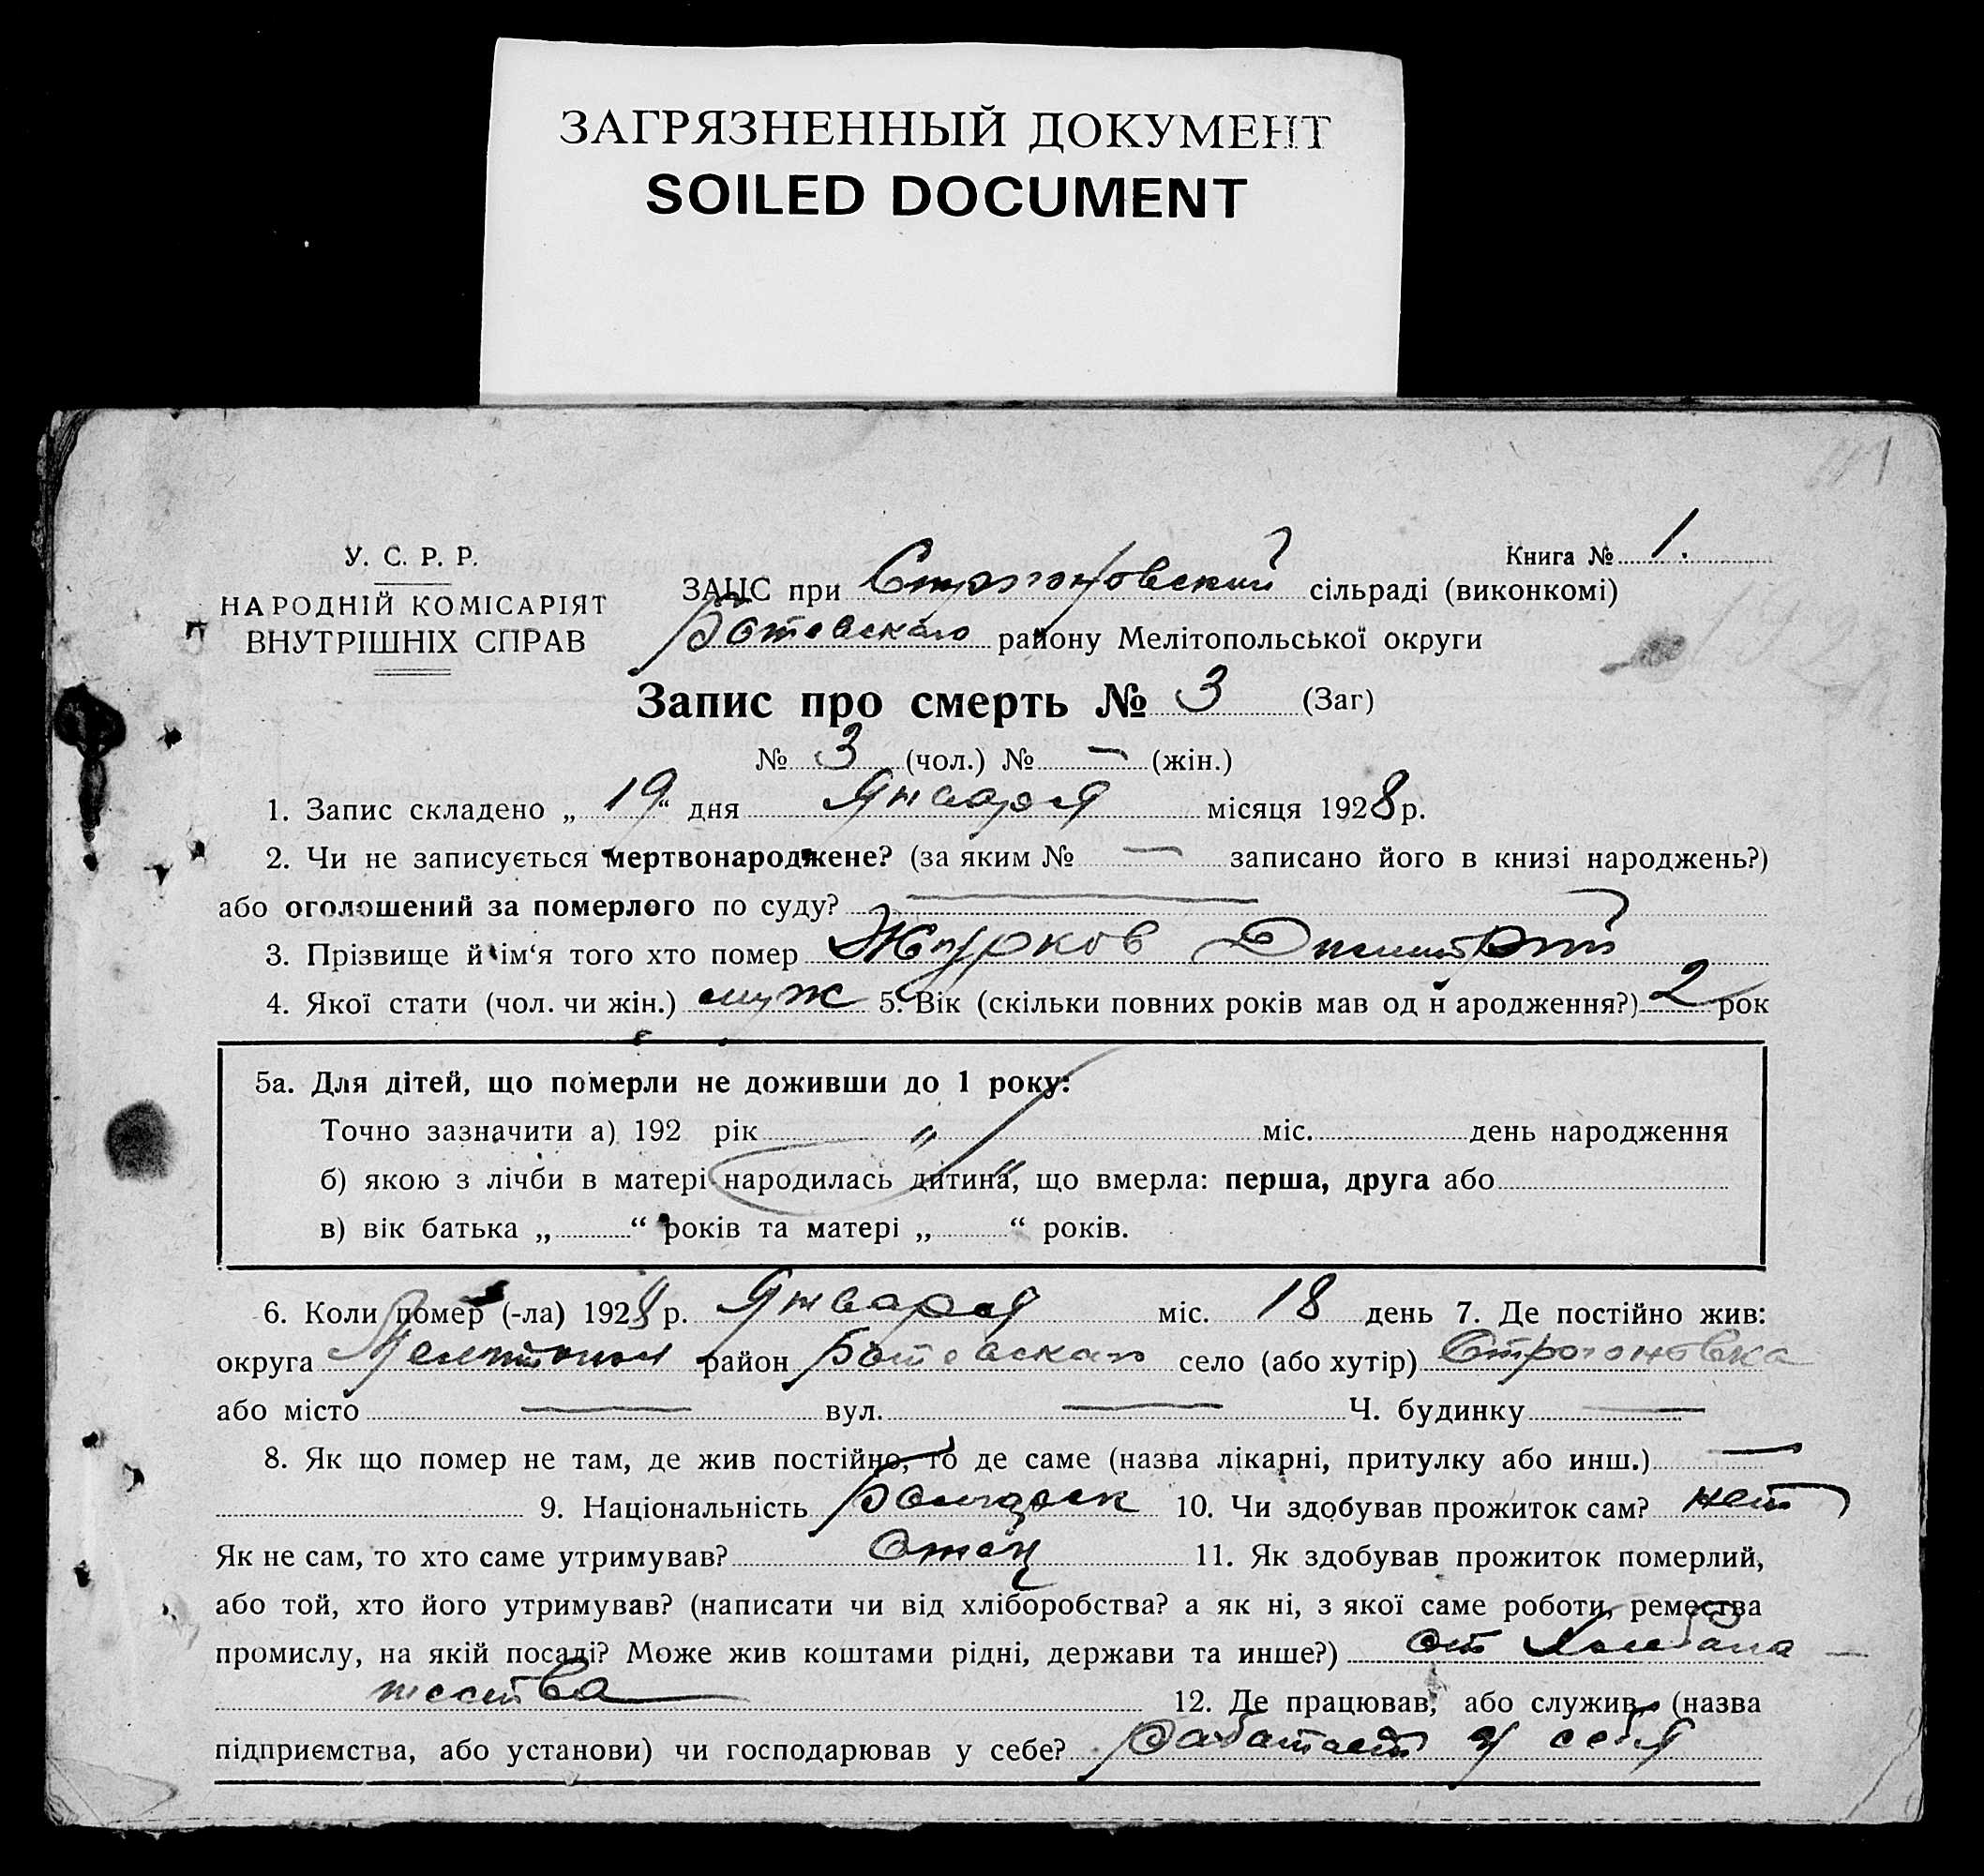 ЗАГРЯЗНЕННЫЙ ДОКУМЕНТ
SOILED DOCUMENT
У. С. Р. Р.
НАРОДНІЙ КОМІСАРІЯТ
ВНУТРІШНІХ СПРАВ
Книга № 1.
ЗАЦС при Строгоновский сільраді (виконкомі)
Ботевского району Мелітопольської округи
Запис про смерть № 3 (Заг)
№ 3 (чол.) № — (жін.)
1. Запис складено „ 19 “ дня Января місяця 1928 р.
2. Чи не записується мертвонароджене? (за яким № — записано його в книзі народжень?)
або оголошений за померлого по суду? —
3. Прізвище й ім‘я того хто помер Журков Дмитрий
4. Якої стати (чол. чи жін.) муж 5. Вік (скільки повних років мав од н ародження?) 2 рок
5а. Для дітей, що померли не доживши до 1 року:
Точно зазначити а) 192 рік „ міс. день народження
б) якою з лічби в матері народилась дитина, що вмерла: перша, друга або
в) вік батька „ “ років та матері „ “ років.
6. Коли помер (-ла) 1928 р. Января міс. 18 день 7. Де постійно жив:
округа район Ботевского село (або хутір) Строгоновка
або місто — вул. — Ч. будинку —
8. Як що помер не там, де жив постійно, то де саме (назва лікарні, притулку або инш.) —
9. Національність 10. Чи здобував прожиток сам? нет
Як не сам, то хто саме утримував? Отец 11. Як здобував прожиток померлий,
або той, хто його утримував? (написати чи від хліборобства? а як ні, з якої саме роботи, ремества
промислу, на якій посаді? Може жив коштами рідні, держави та инше?) от
12. Де працював, або служив (назва
підприємства, або установи) чи господарював у себе? Работает у себя